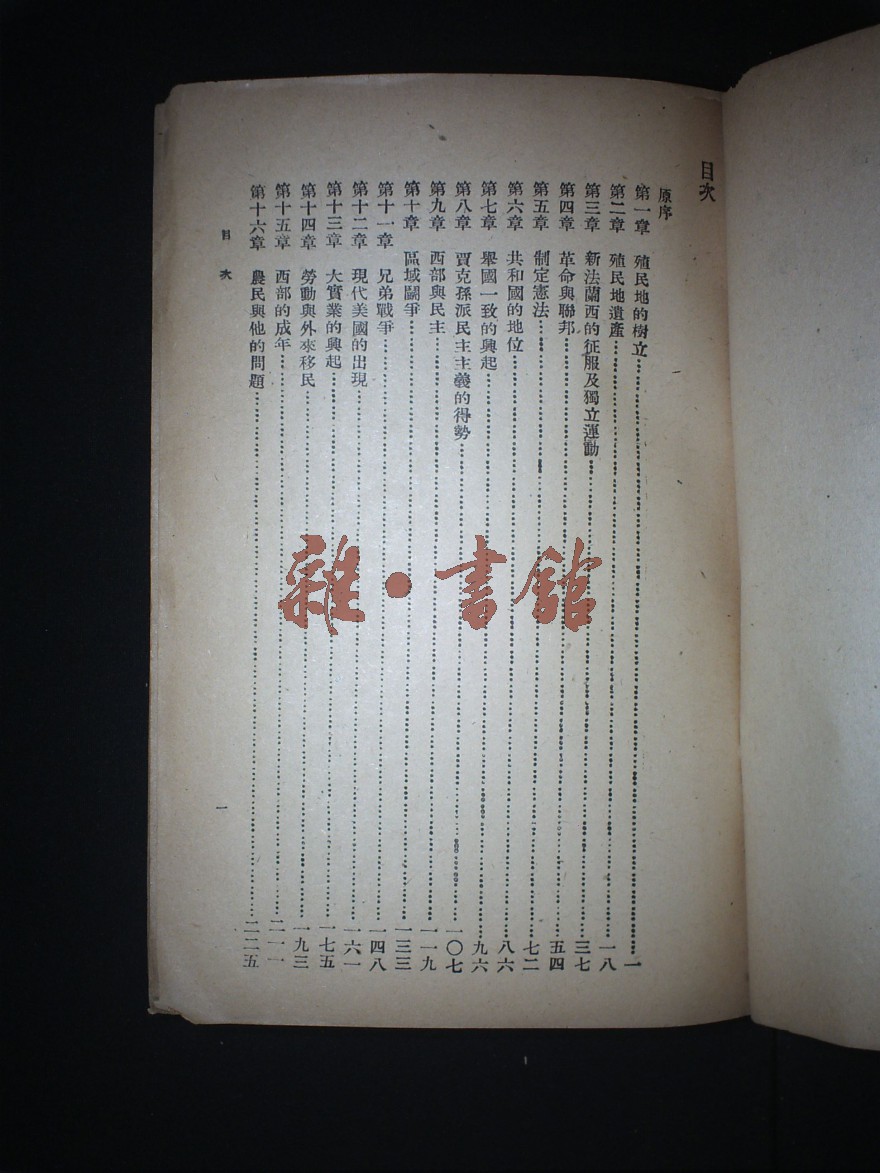 目次
原序
第一章 殖民地的樹立 一
第二章 殖民地遺產 一八
第三章 新法蘭西的征服及獨立運動 三七
第四章 革命與聯邦 五四
第五章 制定憲法 七二
第六章 共和國的地位 八六
第七章 舉國一致的興起 九六
第八章 賈克孫派民主主義的得勢 一〇七
第九章 西部與民主 一一九
第十章 區域鬭爭 一三三
第十一章 兄弟戰爭 一四八
第十二章 現代美國的出現 一六一
第十三章 大實業的興起 一七五
第十四章 勞動與外來移民 一九三
第十五章 西部的成年 二一一
第十六章 農民與他的問題 二二五
目次 一
雜·書館